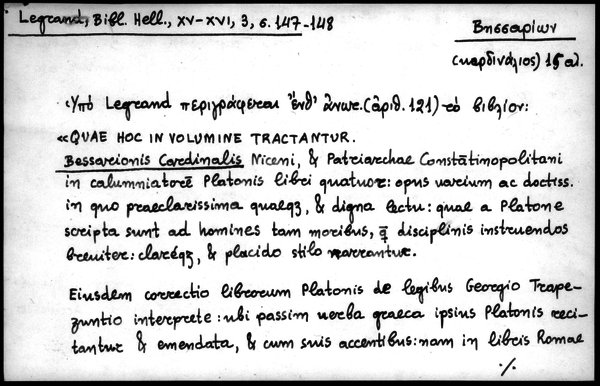 Legrand, Bibl. Hell., XV-XVI, 3, σ. 147-148
Βησσαρίων
(καρδινάλιος) 15 αἰ.
Ὑπό Legrand περιγράφεται ἔνθ' ἀνωτ. (ἀριθ. 121) τό βιβλίον:
«QUAE HOC IN VOLUMINE TRACTANTUR.
Bessarionis Cardinalis Niceni, & Patriarchae Constātinopolitani
in calumniatorē Platonis libri quatuor: opus varium ac doctiss.
in quo praeclarissima quaeqz, & digna lectu: quae a Platone
scripta sunt ad homines tam moribus, q̄ disciplinis instruendos
breuiter: claréqz, & placido stilo narrantur.
Eiusdem correctio librorum Platonis de legibus Georgio Trape-
zuntio interprete: ubi passim uerba graeca ipsius Platonis reci-
tantur & emendata, & cum suis accentibus: nam in libris Romae
./.